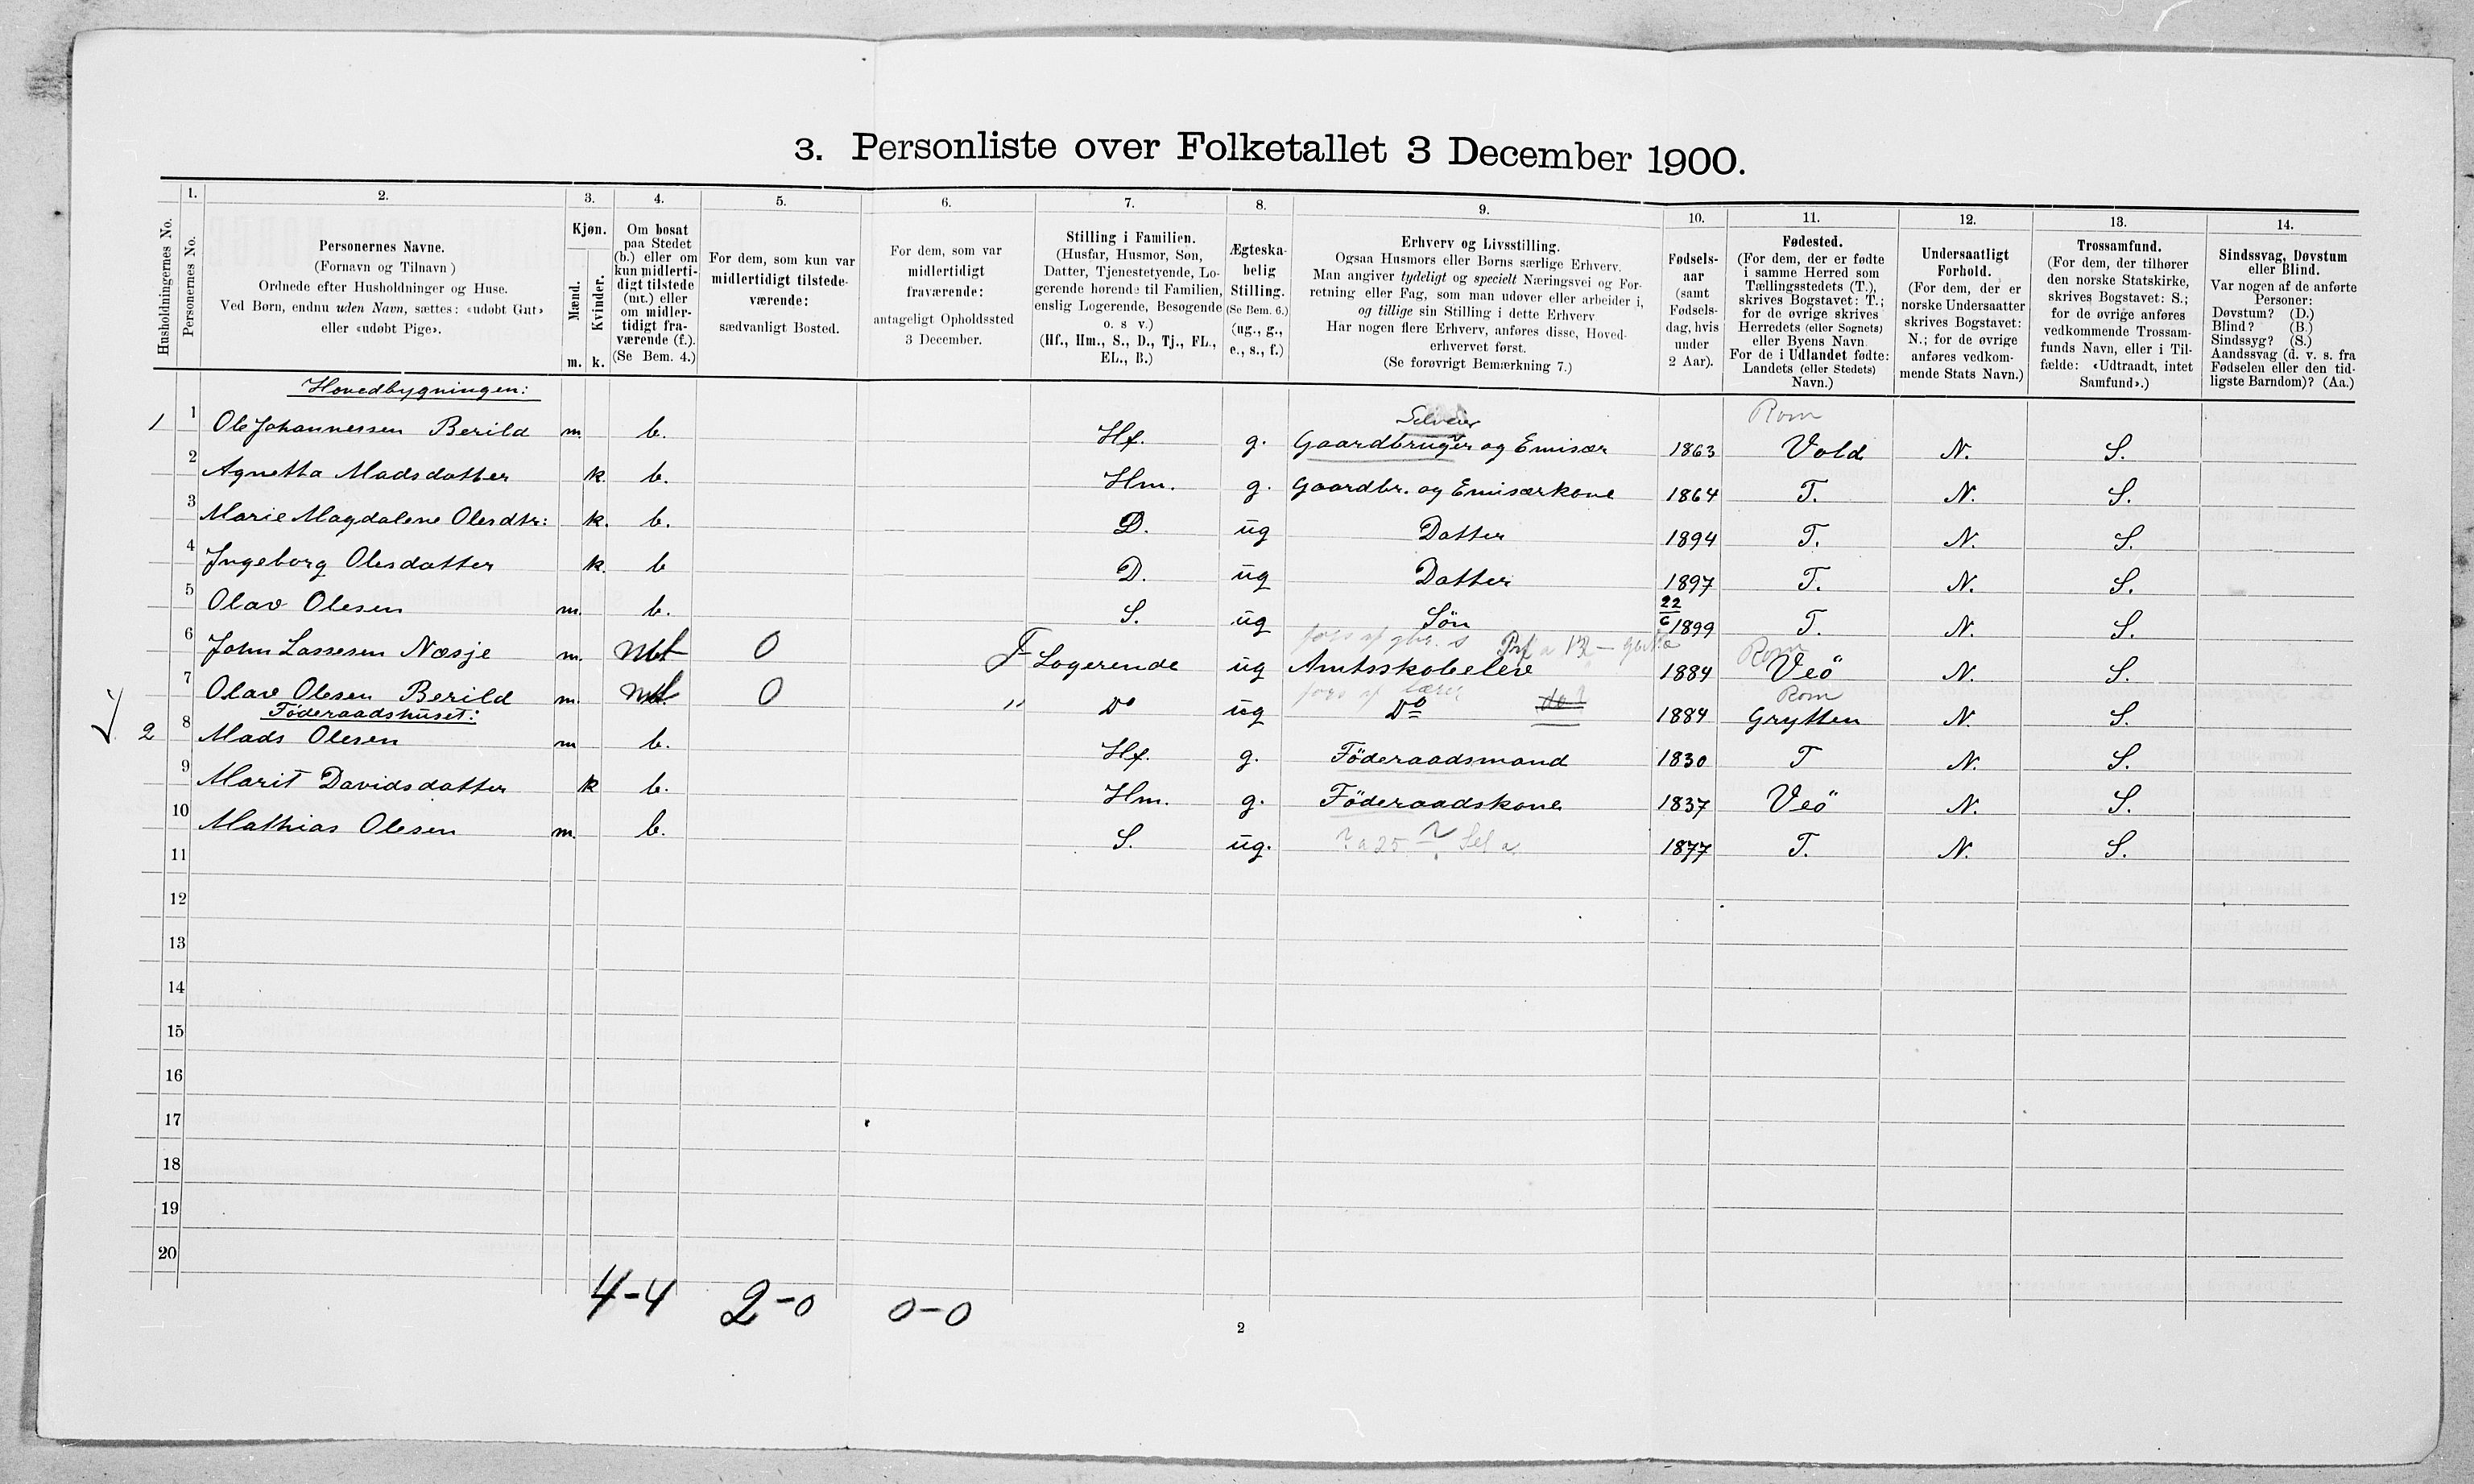 3. Personliste over Folketallet 3 December 1900.
Husholdningernes No.
1.
Personernes No.
2.
Personernes Navne.
(Fornavn og Tilnavn)
Ordnede efter Husholdninger og Huse.
Ved Børn, endnu uden Navn, sættes: «udøbt Gut»
eller «udøbt Pige».
3.
Kjøn.
Mænd.
Kvinder.
m. k.
4.
Om bosat
paa Stedet
(b.) eller om
kun midlerti-
digt tilstede
(mt.) eller
om midler-
tidigt fra-
værende (f.).
(Se Bem. 4.)
5.
For dem, som kun var
midlertidigt tilstede-
værende:
sædvanligt Bosted.
6.
For dem, som var
midlertidigt
fraværende:
antageligt Opholdssted
3 December.
7.
Stilling i Familien.
(Husfar, Husmor, Søn,
Datter, Tjenestetyende, Lo-
gerende hørende til Familien,
enslig Logerende, Besøgende
o. s v.)
(Hf., Hm., S., D., Tj., FL.,
EL., B.)
8.
Ægteska-
belig
Stilling.
(Se Bem. 6.)
(ug., g.,
e., s., f.)
9.
Erhverv og Livsstilling.
Ogsaa Husmors eller Børns særlige Erhverv.
Man angiver tydeligt og specielt Næringsvei og For-
retning eller Fag, som man udøver eller arbeider i,
og tillige sin Stilling i dette Erhverv
Har nogen flere Erhverv, anføres disse, Hoved-
erhvervet først.
(Se forøvrigt Bemærkning 7.)
10.
Fødsels-
aar
(samt
Fødsels-
dag, hvis
under
2 Aar).
11.
Fødested.
(For dem, der er fødte
i samme Herred som
Tællingsstedets (T.),
skrives Bogstavet: T.;
for de øvrige skrives
Herredets (eller Sognets)
eller Byens Navn
For de i Udlandet fødte:
Landets (eller Stedets)
Navn.)
12.
Undersaatligt
Forhold.
(For dem, der er
norske Undersaatter
skrives Bogstavet:
N.; for de øvrige
anføres vedkom-
mende Stats Navn.)
13.
Trossamfund.
(For dem, der tilhører
den norske Statskirke,
skrives Bogstavet: S.;
for de øvrige anføres
vedkommende Trossam-
funds Navn, eller i Til-
fælde: «Udtraadt, intet
Samfund».)
14.
Sindssvag, Døvstum
eller Blind.
Var nogen af de anførte
Personer:
Døvstum? (D.)
Blind? (B.)
Sindssyg? (S.)
Aandssvag (d. v. s. fra
Fødselen eller den tid-
ligste Barndom)? (Aa.)
Hovedbygningen:
Selveier Rom
1 1 Ole Johannessen Berild m. b. Hf. g. Gaardbruger og Emisær 1863 Vold N. S.
2 Agnetha Madsdatter k. b. Hm. g. Gaardbr. og Emisærkone 1864 T. N. S.
3 Marie Magdalene Olesdtr: k. b. D. ug Datter 1894 T. N. S.
4 Ingeborg Olesdatter k. b D. ug Datter 1897 T. N. S.
5 Olav Olesen m. b. S. ug Sön 22/6 1899 T. N. S.
Rom
6 John Lassesen Næsje m. mt 0 F Logerende ug Amtsskoleelev 1884 Veö N. S.
Rom
7 Olav Olesen Berild m. mt 0 " Do ug Do 1884 Grytten N. S.
Föderaadshuset:
2 8 Mads Olesen m b. Hf. g. Föderaadsmand 1830 T N. S.
9 Marit Davidsdatter k b. Hm. g. Föderaadskone 1837 Veö N. S.
10 Mathias Olesen m. b. S. ug. 1877 T. N. S.
11
12
13
14
15
16
17
18
19
20
4-4 2-0 0-0
2